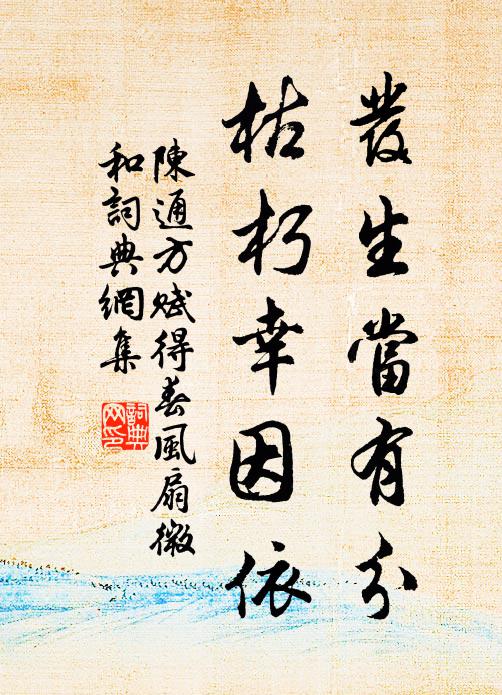 發生當有分
枯朽幸因依
陳通方賦得春風扇微
和詞典網集
詞典
网印